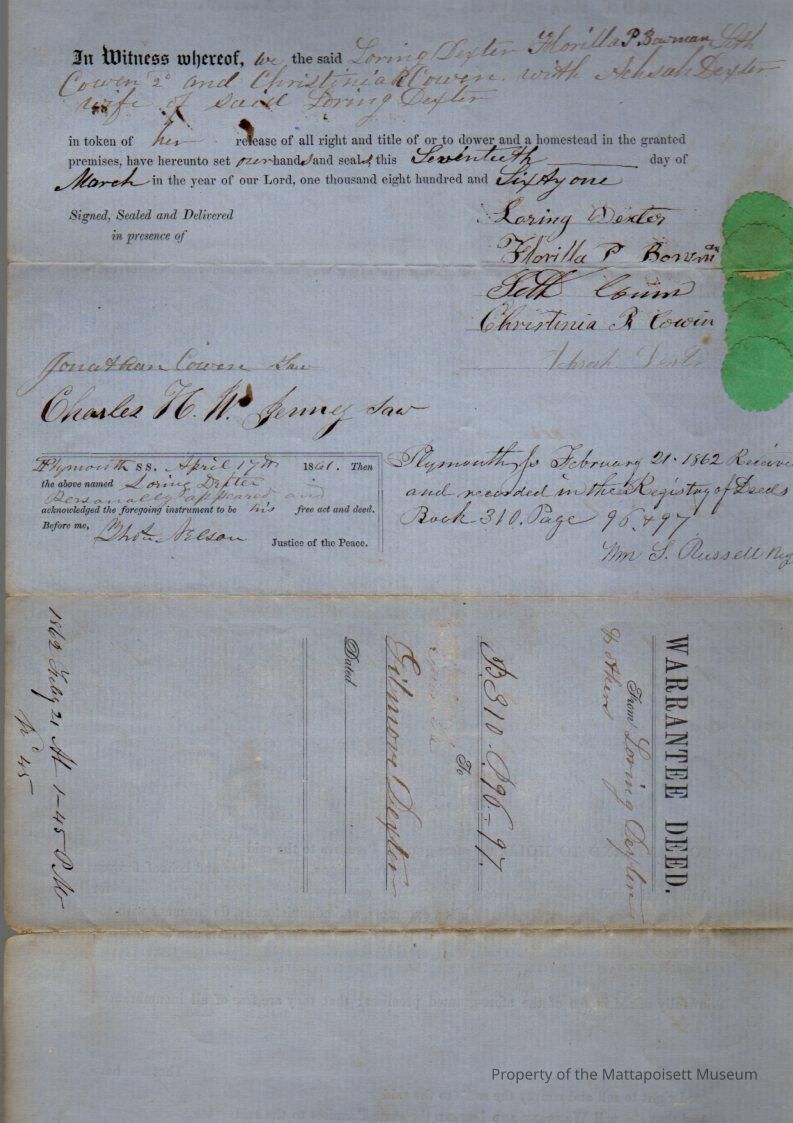 In Witness whereof, we the said Loring Dexter Florilla P. Bowman Seth
Cowen 2d and Christinia R Cowen. with Achsah Dexter
wife of said Loring Dexter
in token of her release of all right and title of or to dower and a homestead in the granted
premises, have hereunto set our hands and seals, this Seventeeth day of
March in the year of our Lord, one thousand eight hundred and Sixty one
Signed, Sealed and Delivered
in presence of
Loring Dexter
Florilla P Bowman
Seth Cowin
Christinia R Cowin
Achsah Dexter
Jonathan Cowen
Charles H. W. Jenney
Plymouth SS. April 17th 1861. Then
the above named Loring Dexter
Personally appeared and
acknowledged the foregoing instrument to be his free act and deed.
Before me, Thos. Nelson
Justice of the Peace.
Plymouth Ss February 21. 1862 Receive
and recorded in the Registry of Deeds
Book 310. Page 96 & 97
Wm S. Russell Reg
WARRANTEE DEED.
From Loring Dexter
& others
B 310. P96-97.
To
Gilmore Dexter
Dated
1862 Feby 21 At 1-45 P.M
Property of the Mattapoisett Museum